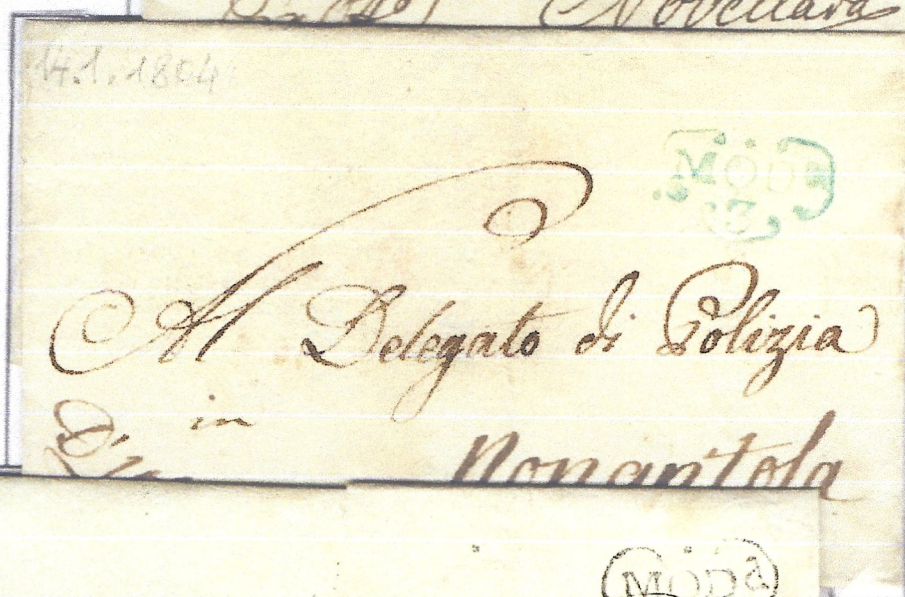 Novellara
14.1.1804
MOD
Al Delegato di Polizia
in
Nonantola
MODA